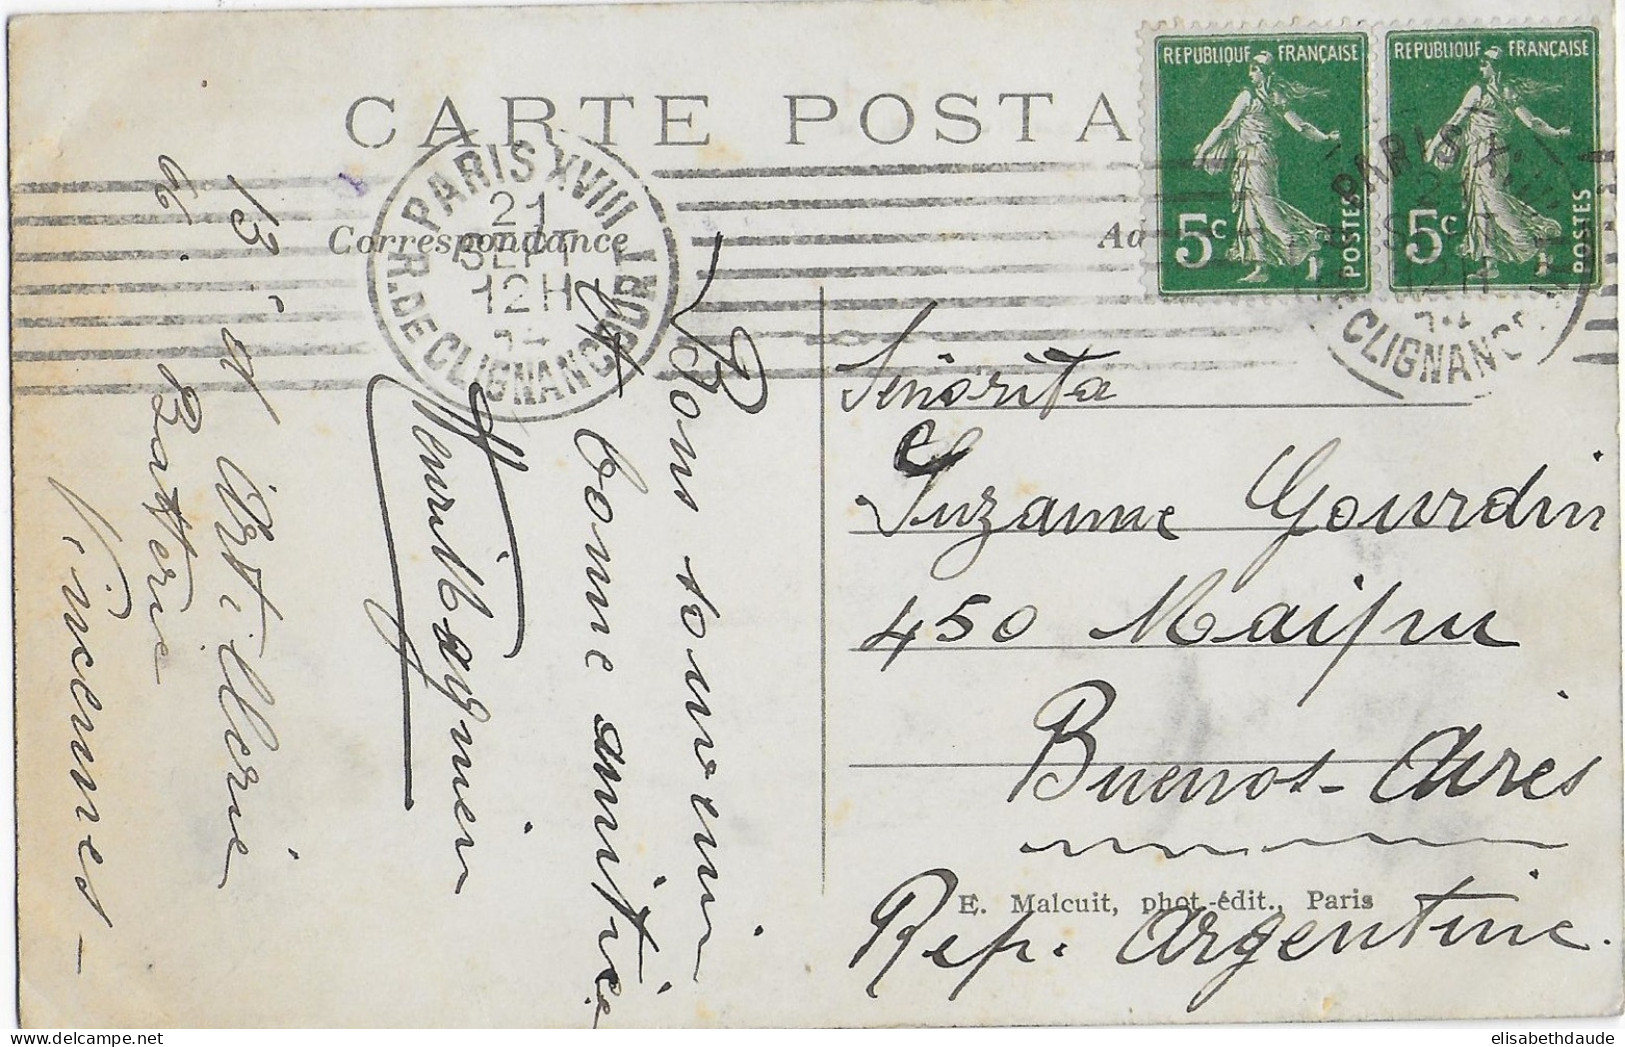 CARTE POSTA
Correspondance
Ad
REPUBLIQUE FRANÇAISE
5c
POSTES
REPUBLIQUE FRANÇAISE
5c
POSTES
PARIS XVIII
21
SEPT
12H
R. DE CLIGNANCOURT
PARIS XVIII
CLIGNANC
Bons souvenir
et bonne amitiée
Henri Magnien
13e d'Artillerie
6e Batterie
Vincennes -
Señorita
Suzanne Gourdin
450 Maipu
Buenos-Aires
Rep. Argentine.
E. Malcuit, phot.-édit., Paris
elisabethdaude